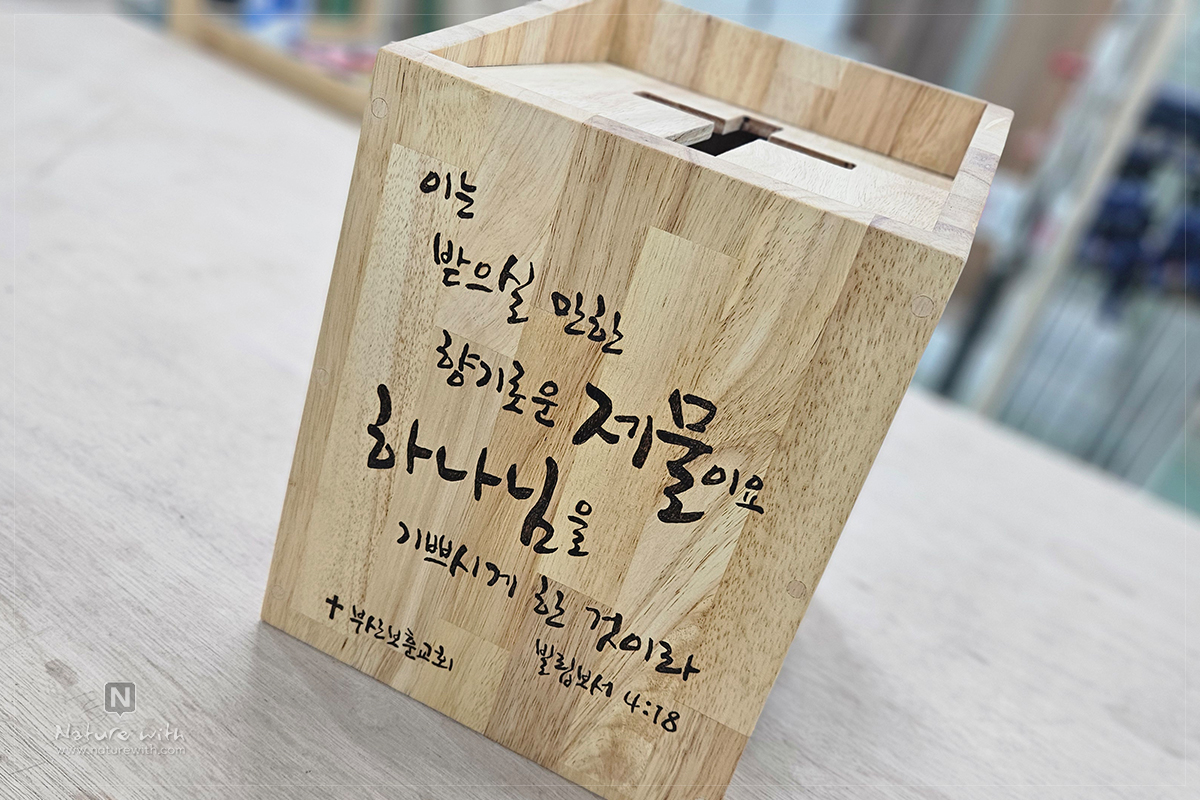 이는
받으실 만한
향기로운 제물이요
하나님을
기쁘시게 한 것이라
빌립보서 4:18
+ 부산보훈교회
N
Nature with
www.naturewith.com